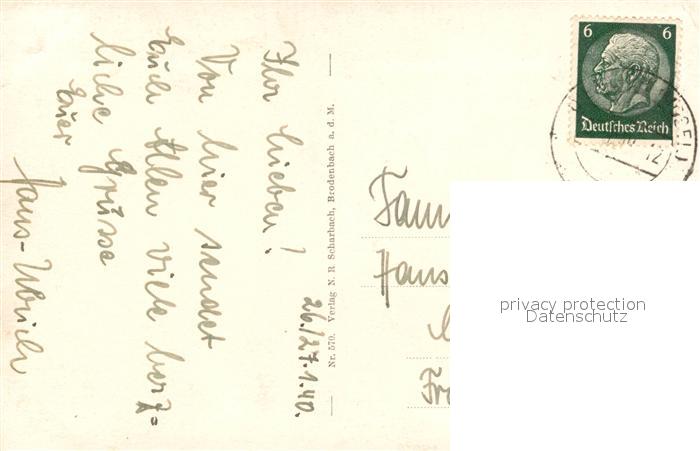 26./27.1.40.
Ihr Lieben!
Von hier sendet
Euch Allen viele herz=
liche Grüsse
Euer
Hans-Ulrich
Nr. 570. Verlag N. R. Scharbach, Brodenbach a. d. M.
6 6
Deutsches Reich
Fam
Hans
Fr
privacy protection
Datenschutz